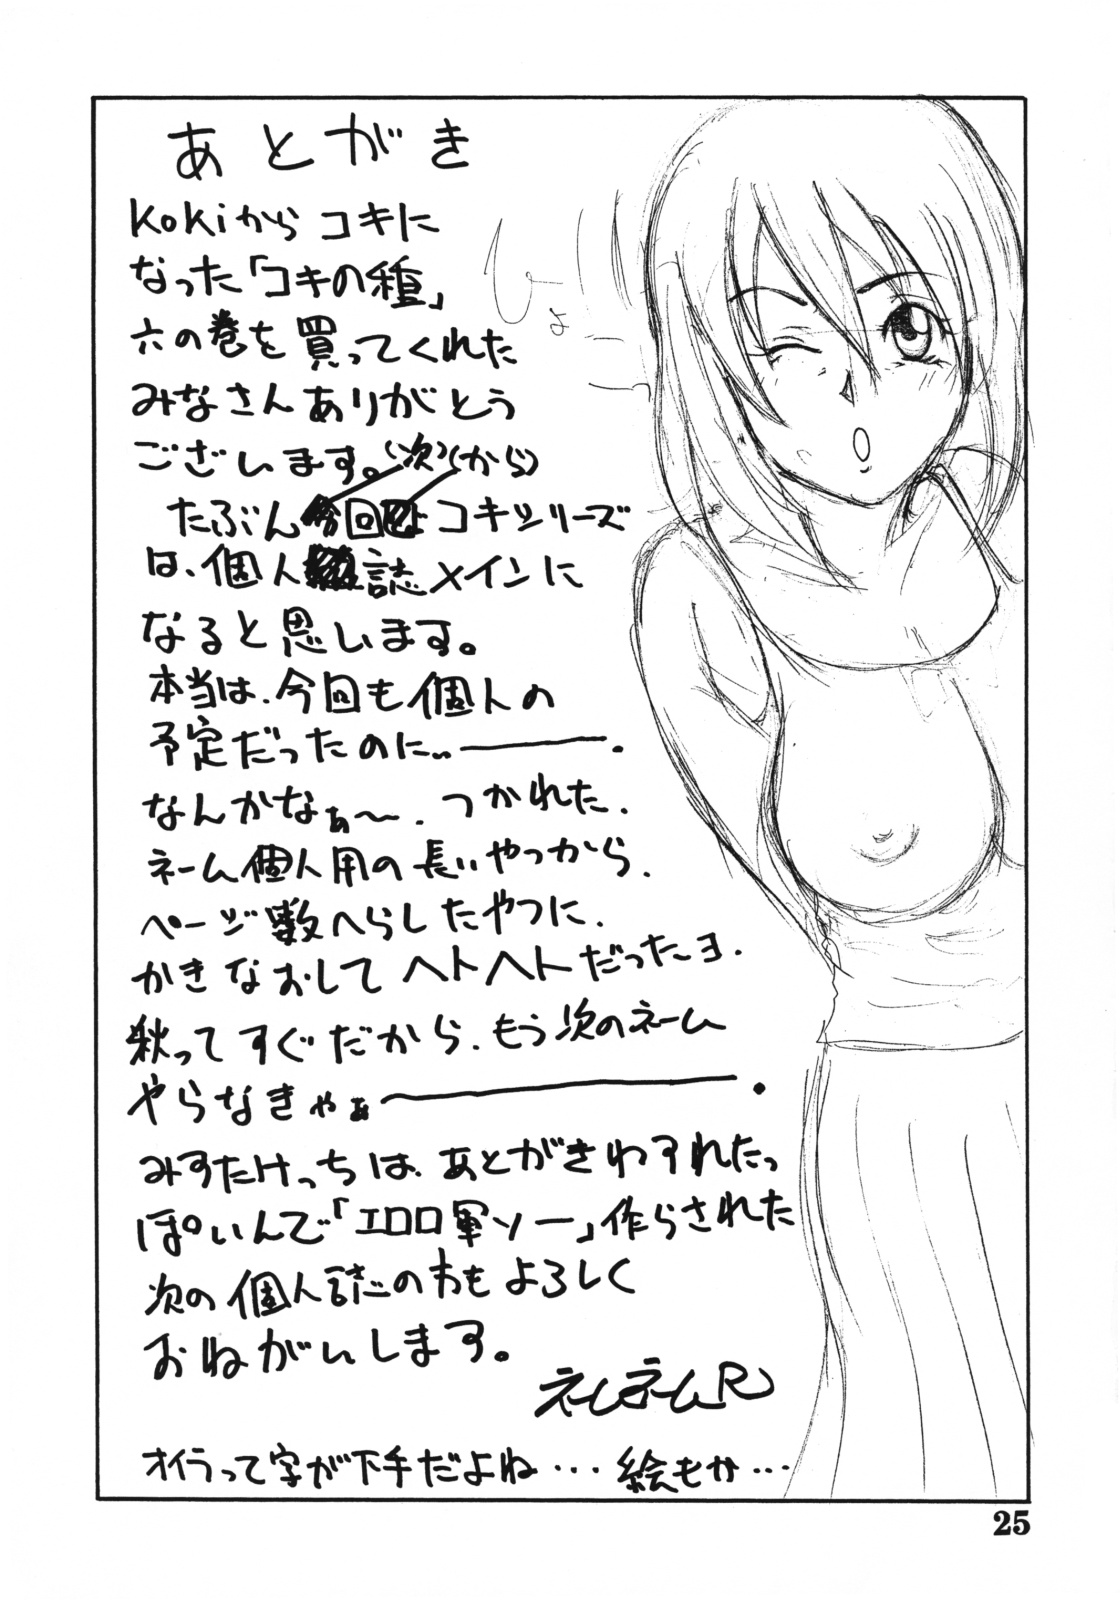 あとがき
kokiから コキに
なった「コキの種」
六の巻を買ってくれた
みなさんありがとう
ございます。(次)(から)
たぶん 今回 コキシリーズ
は、個人誌メインに
なると思います。
本当は、今回も個人の
予定だったのに‥――.
なんかなぁ〜. つかれた.
ネーム個人用の長いやつから.
ページ数へらしたやつに.
かきなおしてヘトヘトだった〜ヨ.
秋ってすぐだから、もう次のネーム
やらなきゃぁ――――.
みすたけっちは、あとがきわすれたっ
ぽいんで「エロロ軍ソー」作らされた
次の個人誌のわもよろしく
おねがいします。
ネームネームR
オイラって字が下手だよね・・・絵もか・・・
ひょ
25